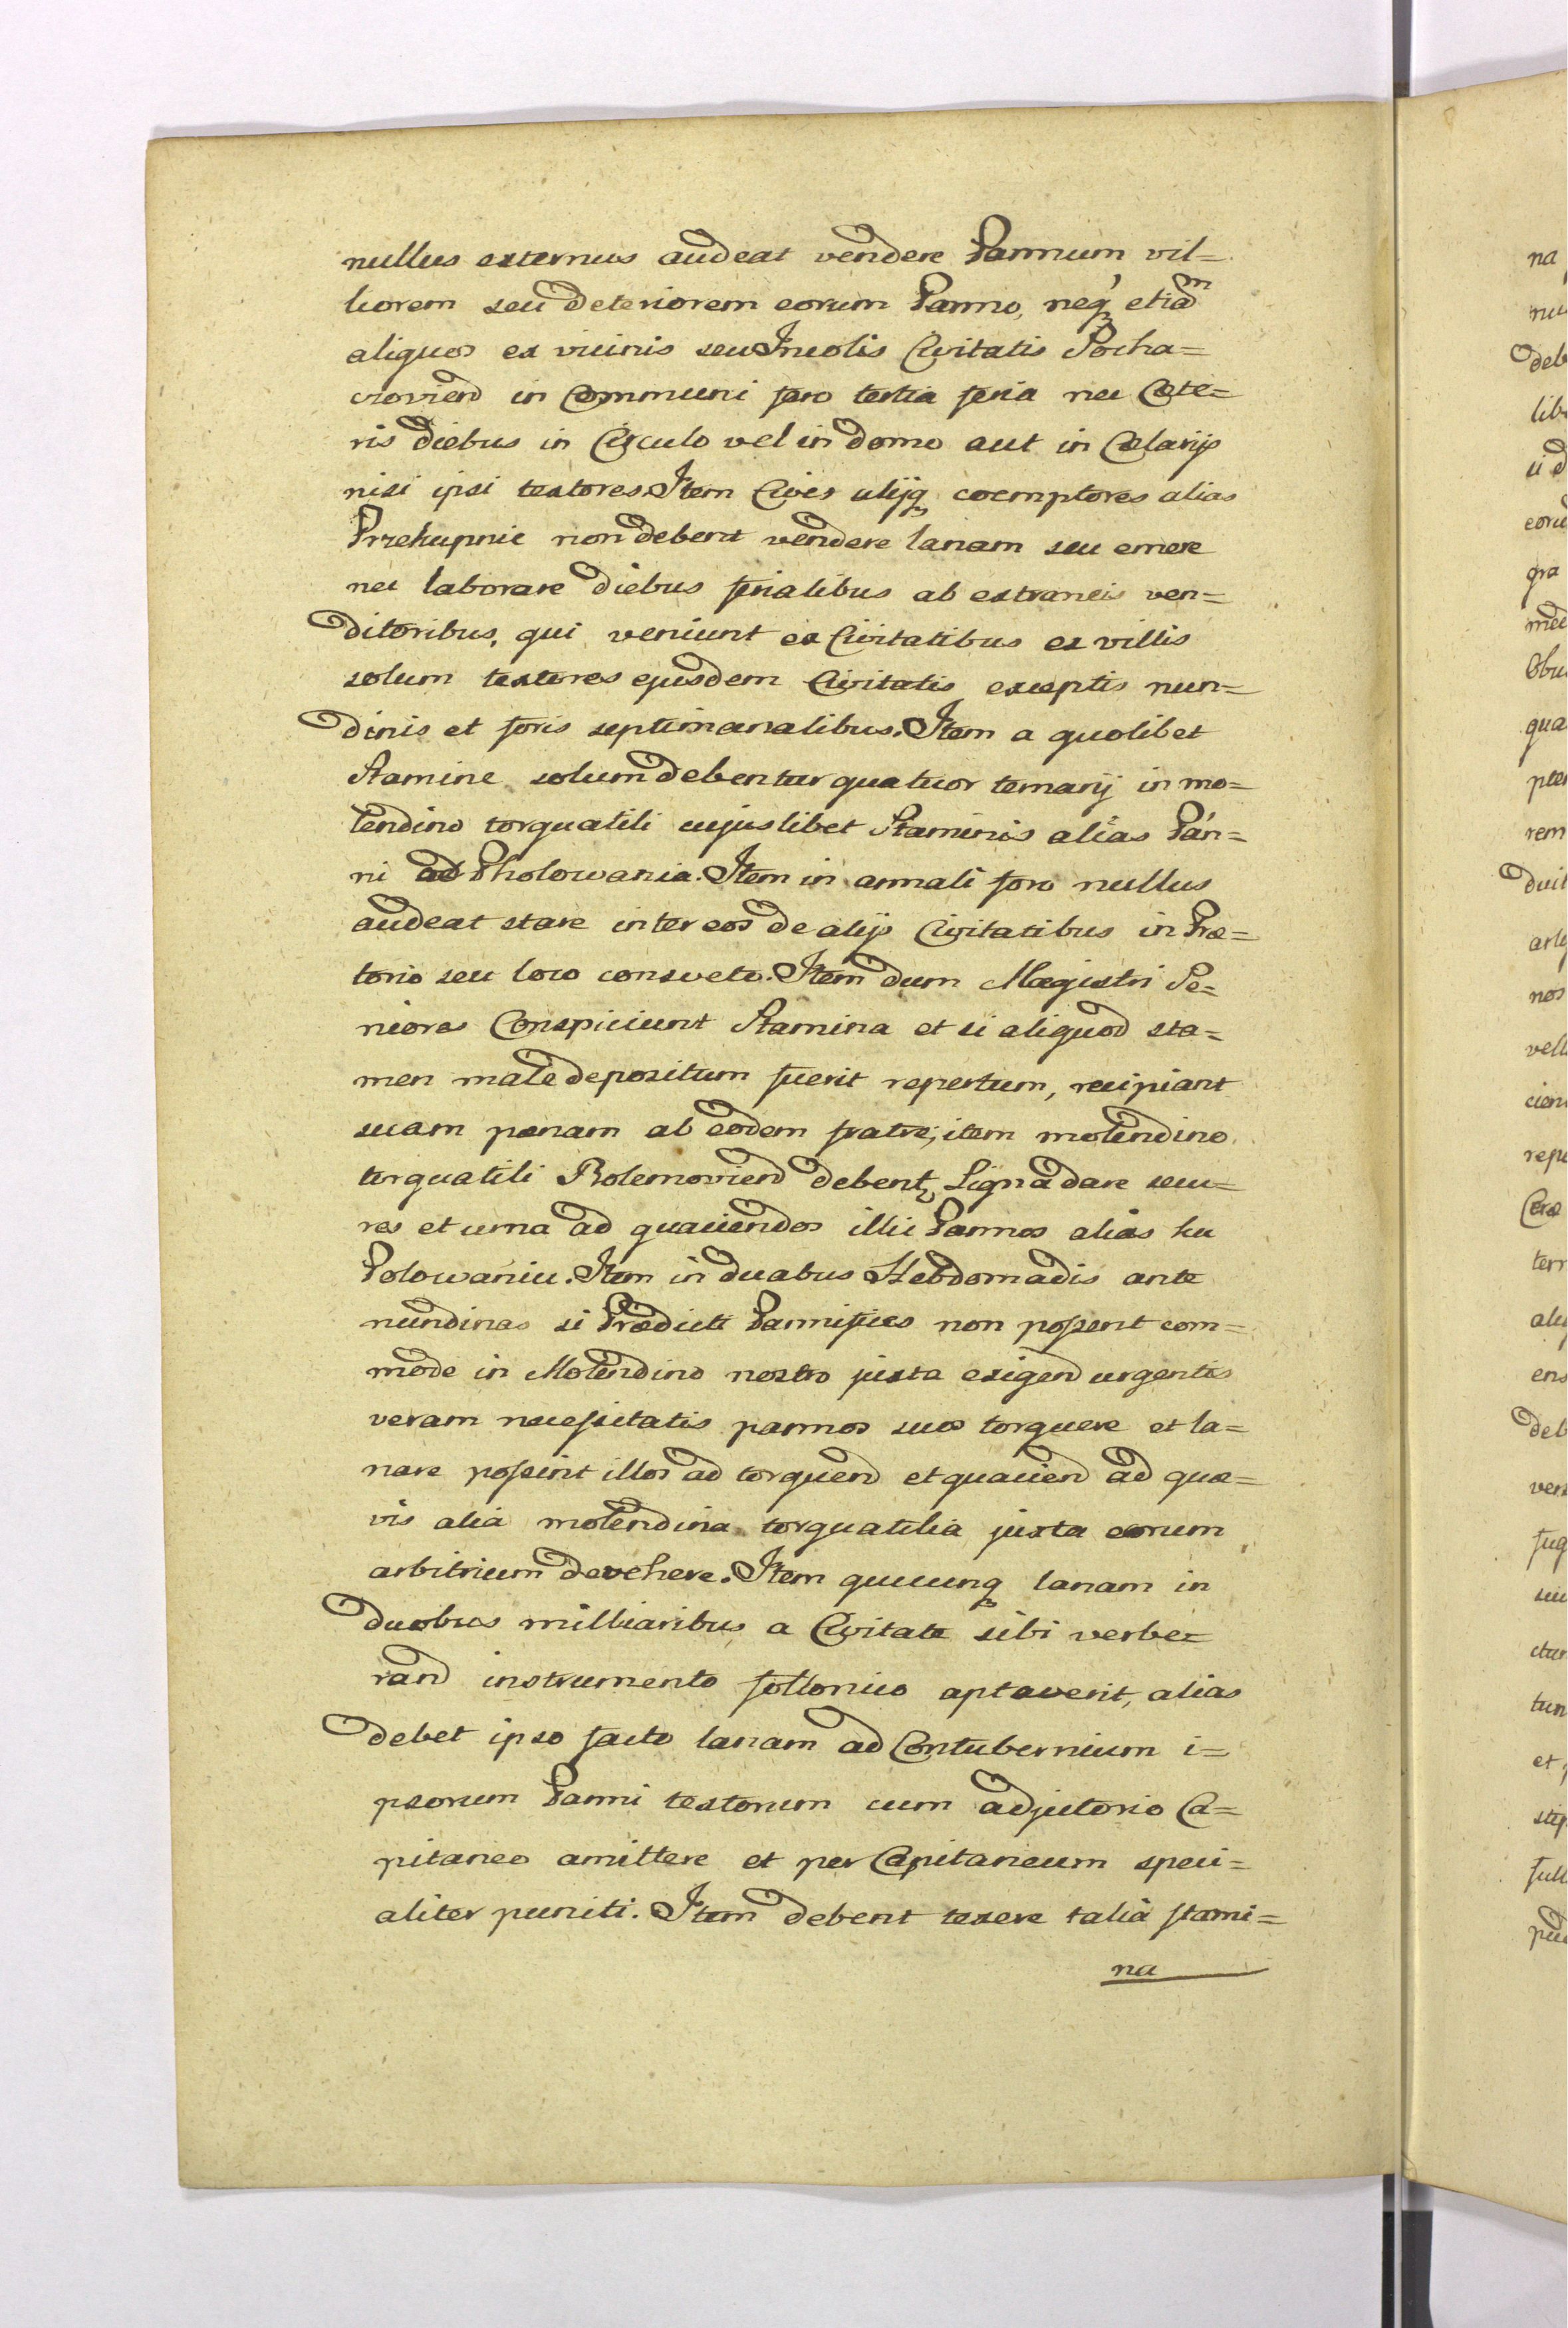 nullus externus audeat vendere Pannum vil=
liorem seu deteriorem eorum Panno, neq́ etiam
aliquos ex vicinis seu Incolis Civitatis Socha=
czoviend in Communi foro tertia feria nec Cete=
ris diebus in Circulo vel in domo aut in Celarijs
nisi ipsi textores. Item Cives alijq coemptores alias
Przekupnie non debent vendere lanam seu emere
nec laborare diebus ferialibus ab extraneis ven=
ditoribus, qui veniunt ex Civitatibus ex villis
solum textores ejusdem Civitatis exceptis nun=
dinis et foris septimanalibus. Item a quolibet
Stamine solum debentur quatuor ternarij in mo=
lendino torquatili cujuslibet Staminis alias Pan=
ni od Pholowania. Item in annali foro nullus
audeat stare inter eos de alijs Civitatibus in Præ=
torio seu loco consveto. Item dum Magistri Se=
niores Conspiciunt Stamina et si aliquod sta=
men male depositum fuerit repertum, recipiant
suam pœnam ab eodem fratre; item molendino
torquatili Rolemoviend debent, Ligna dare secu=
res et urna ad quaciendos illic Pannos alias ku
Polowaniu. Item in duabus Hebdomadis ante
nundinas si Prædicti Pannifices non possent com=
mode in Molendino nostro juxta exigend urgentis
veram necessitatis pannos suos torquere et la=
nare possint illos ad torquend et quaciend ad quæ=
vis alia molendina torquatilia juxta eorum
arbitrium devehere. Item quicunq lanam in
duobus milliaribus a Civitate sibi verbe=
rand instrumento follonico aptaverit, alias
debet ipso facto lanam ad Contubernium i=
psorum Panni textorum cum adjutorio Ca=
pitaneo amittere et per Capitaneum speci=
aliter puniti. Item debent texere talia stami=
na